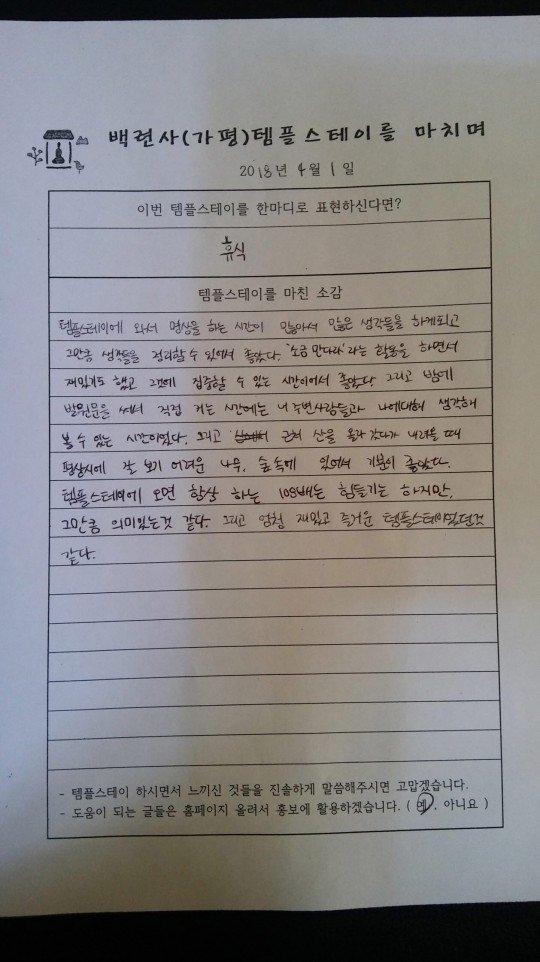 백련사(가평)템플스테이를 마치며
2018년 4월 1일
이번 템플스테이를 한마디로 표현하신다면?
휴식
템플스테이를 마친 소감
템플스테이에 와서 명상을 하는 시간이 많아서 많은 생각들을 하게되고
그만큼 생각들을 정리할 수 있어서 좋았다. '소금 만다라'라는 활동을 하면서
재밌기도 했고 그것에 집중할 수 있는 시간이어서 좋았다. 그리고 밤에
발원문을 써서 직접 거는 시간에는 내 주변사람들과 나에대해 생각해
볼 수 있는 시간이었다. 그리고 근처 산을 올라갔다가 내려올 때
평상시에 잘 보기 어려운 나무, 숲속에 있어서 기분이 좋았다.
템플스테이에 오면 항상 하는 108배는 힘들기는 하지만,
그만큼 의미있는것 같다. 그리고 엄청 재밌고 즐거운 템플스테이였던것
같다.
- 템플스테이 하시면서 느끼신 것들을 진솔하게 말씀해주시면 고맙겠습니다.
- 도움이 되는 글들은 홈페이지 올려서 홍보에 활용하겠습니다. ( 예 , 아니요 )